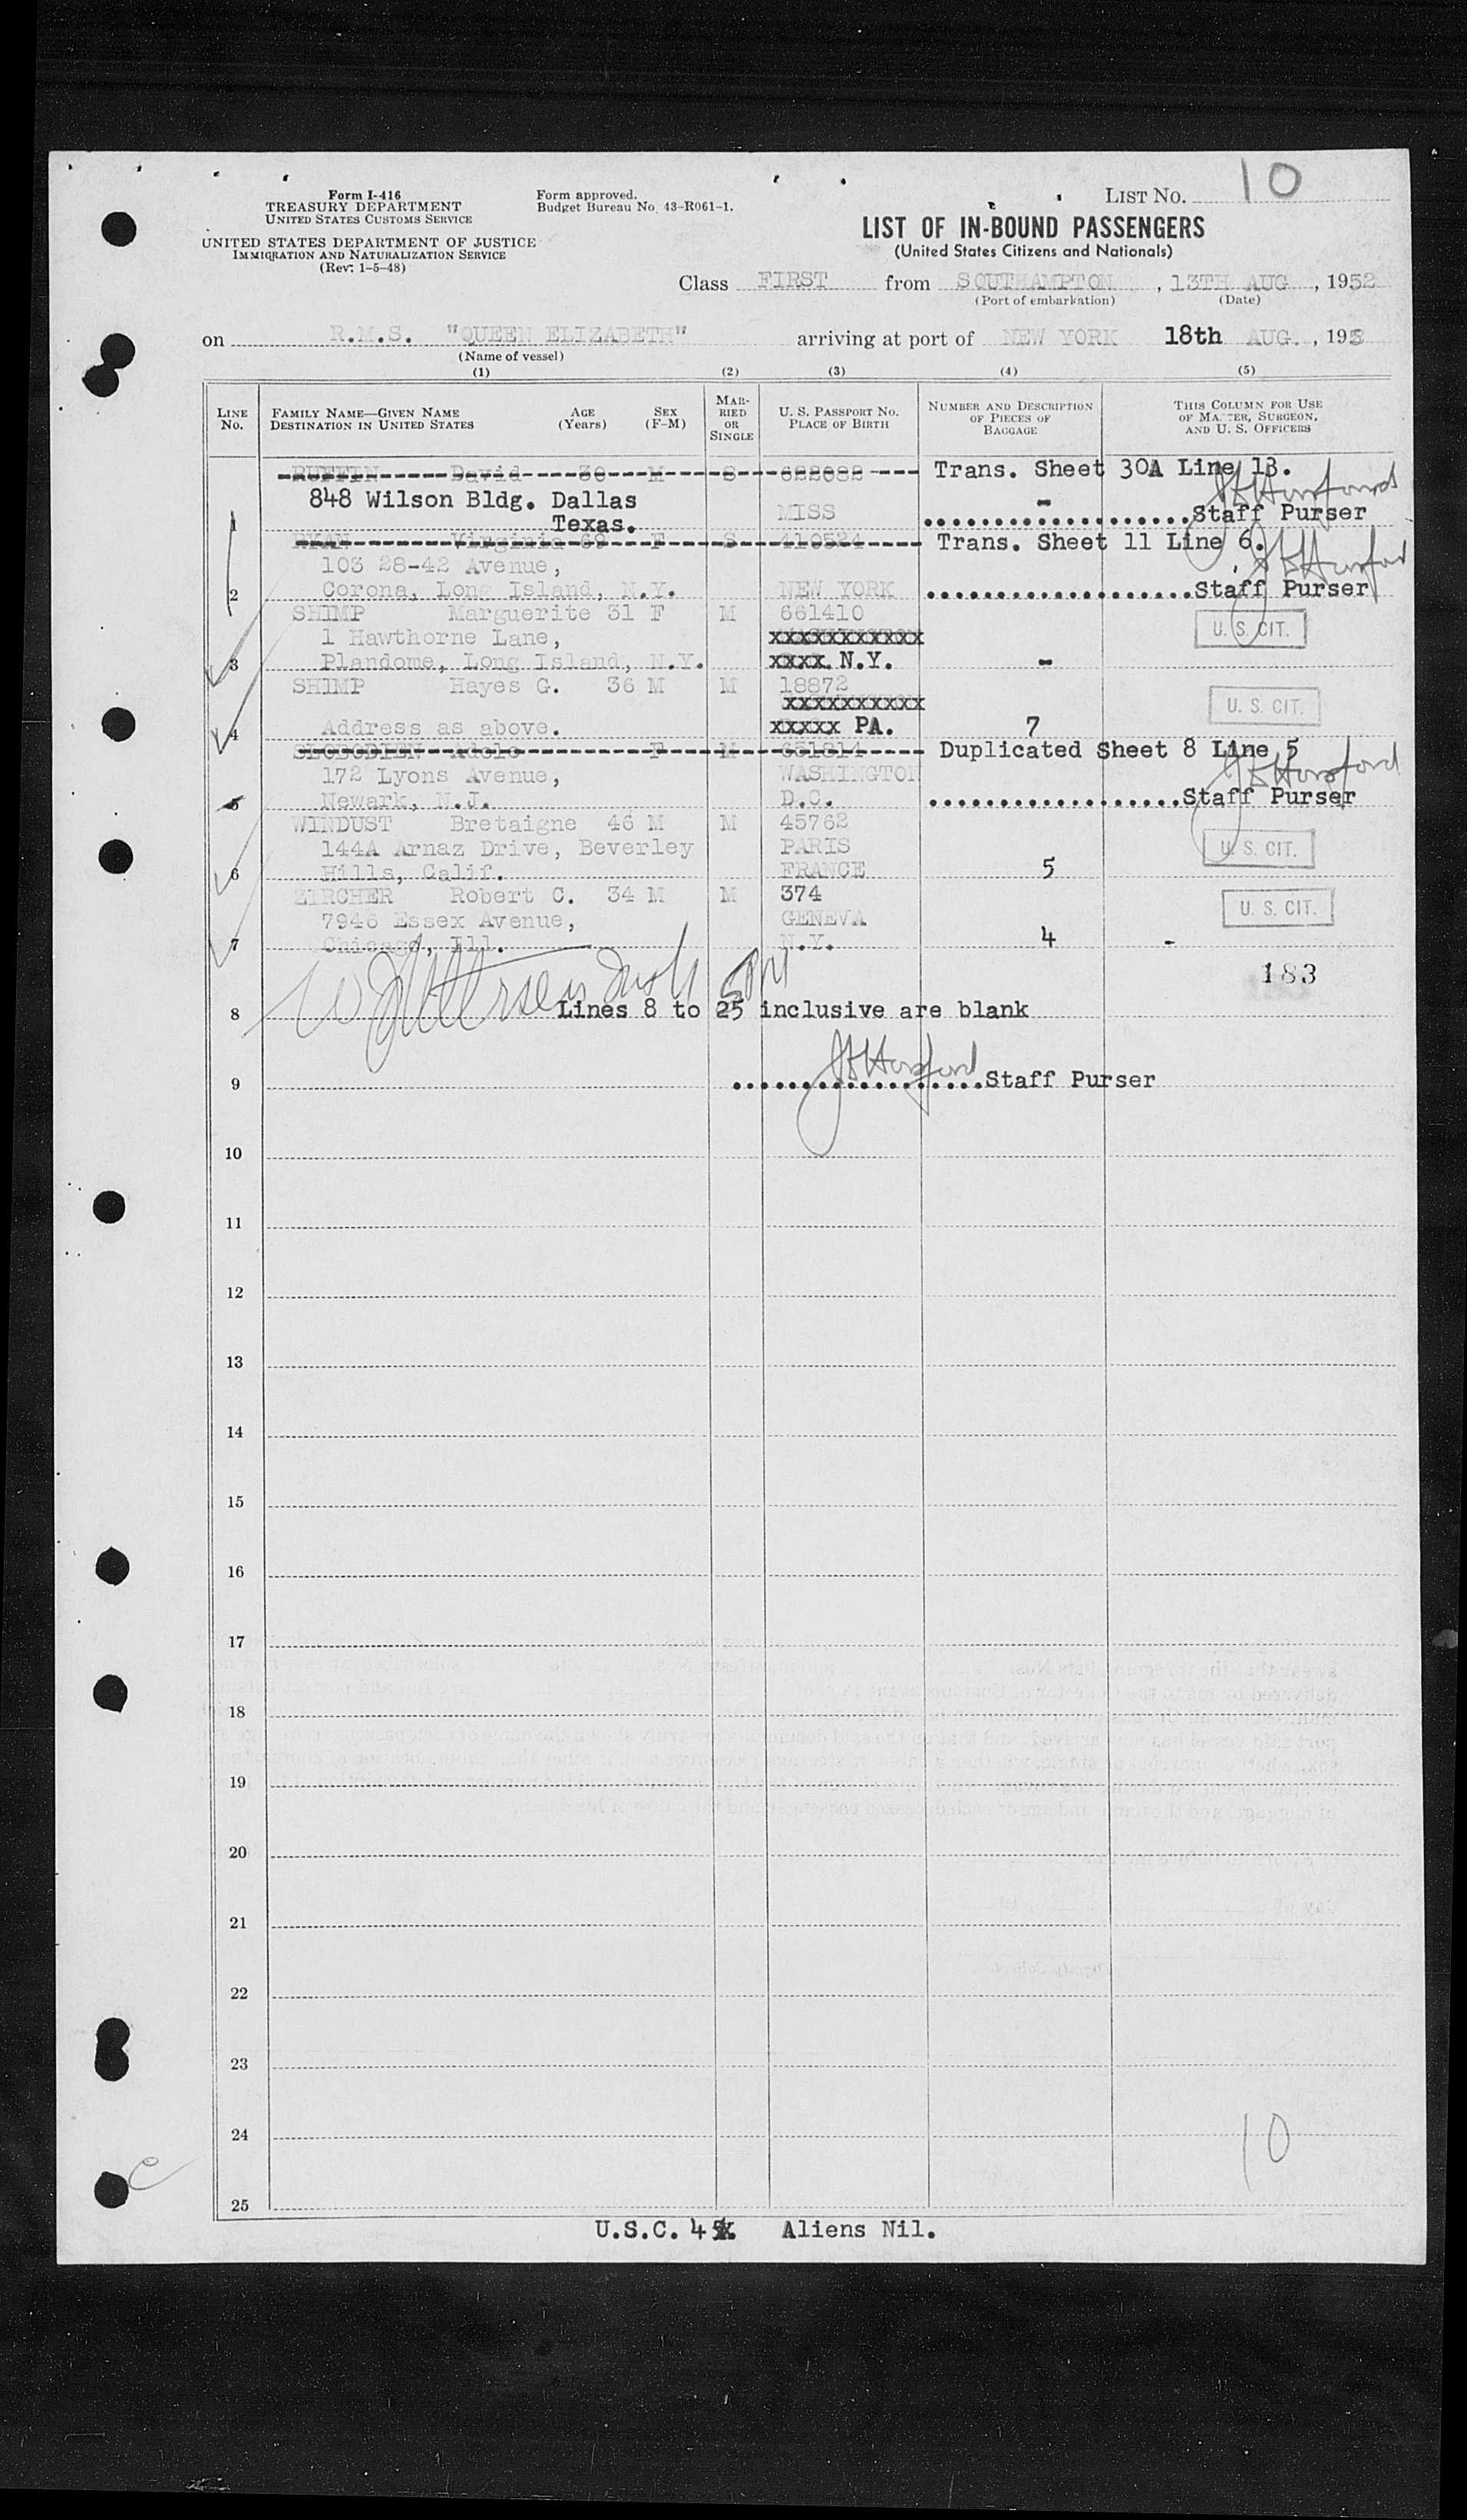 LIST NO. 10
Form I-416
TREASURY DEPARTMENT
UNITED STATES CUSTOMS SERVICE
Form approved.
Budget Bureau No. 43-R061-1.
UNITED STATES DEPARTMENT OF JUSTICE
IMMIGRATION AND NATURALIZATION SERVICE
(Rev. 1-5-48)
LIST OF IN-BOUND PASSENGERS
(United States Citizens and Nationals)
Class FIRST from SOUTHAMPTON, 13TH AUG, 1952
(Port of embarkation) (Date)
on R.M.S. "QUEEN ELIZABETH" arriving at port of NEW YORK 18th AUG., 195
(Name of vessel)
(1) (2) (3) (4) (5)
LINE NO.
FAMILY NAME—GIVEN NAME AGE (Years) SEX (F-M)
DESTINATION IN UNITED STATES
MARRIED OR SINGLE
U. S. PASSPORT NO.
PLACE OF BIRTH
NUMBER AND DESCRIPTION
OF PIECES OF
BAGGAGE
THIS COLUMN FOR USE
OF MASTER, SURGEON,
AND U. S. OFFICERS
RUFFIN David 30 M S 622082 Trans. Sheet 30A Line 13.
848 Wilson Bldg. Dallas MISS -
1 Texas. Staff Purser
Virginia 69 F S 410524 Trans. Sheet 11 Line 6.
103 28-42 Avenue,
2 Corona, Long Island, N.Y. NEW YORK Staff Purser
SHIMP Marguerite 31 F M 661410
1 Hawthorne Lane, xxxxxxxxxxx U. S. CIT.
3 Plandome, Long Island, N.Y. xxxx N.Y. -
SHIMP Hayes G. 36 M M 18872
xxxxxxxxxx U. S. CIT.
4 Address as above. xxxxx PA. 7
Adele F M 651814 Duplicated Sheet 8 Line 5
172 Lyons Avenue, WASHINGTON
5 Newark, N.J. D.C. Staff Purser
WINDUST Bretaigne 46 M M 45762
144A Arnaz Drive, Beverley PARIS U. S. CIT.
6 Hills, Calif. FRANCE 5
ZIRCHER Robert C. 34 M M 374
7946 Essex Avenue, GENEVA U. S. CIT.
7 Chicago, Ill. N.Y. 4 -
183
8 Lines 8 to 25 inclusive are blank
9 Staff Purser
10
11
12
13
14
15
16
17
18
19
20
21
22
23
24
10
25
U.S.C. 4 Aliens Nil.